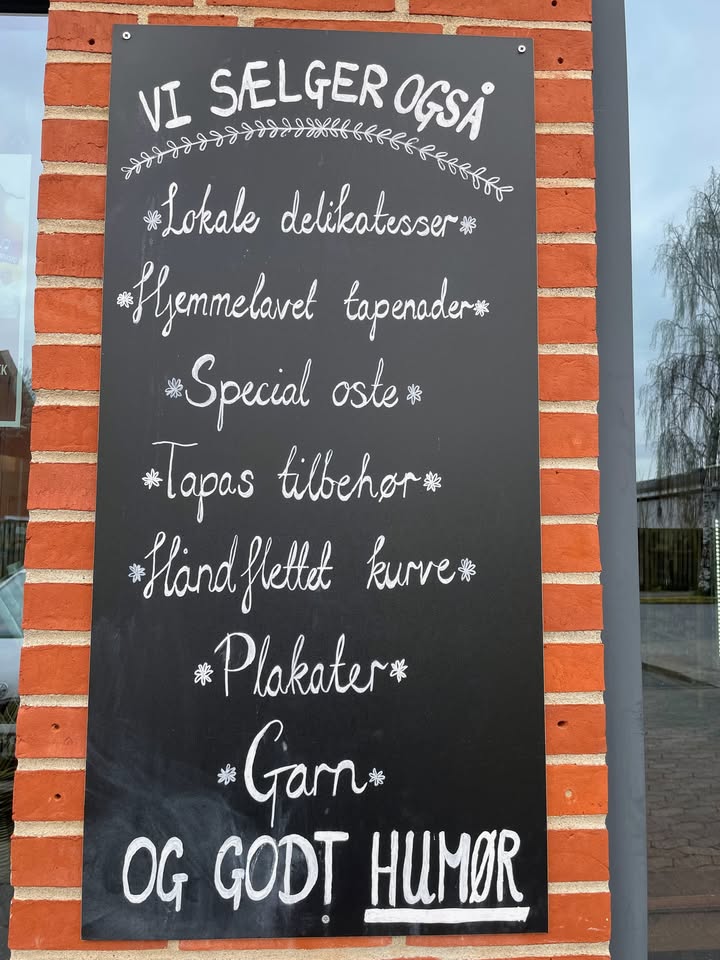 VI SÆLGER OGSÅ
Lokale delikatesser
Hjemmelavet tapenader
Special oste
Tapas tilbehør
Håndflettet kurve
Plakater
Garn
OG GODT HUMØR